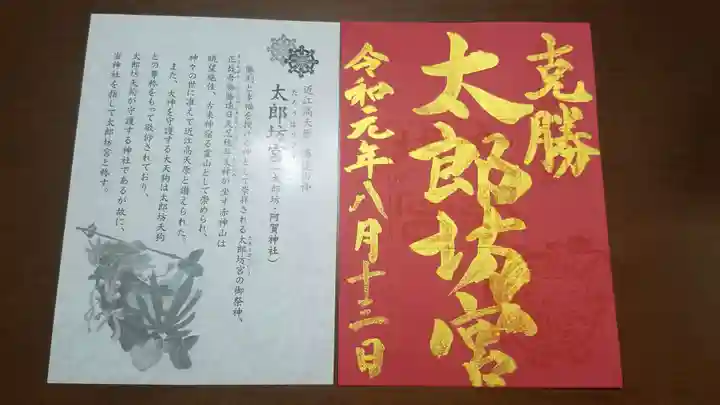 克勝
太郎坊宮
令和元年八月十三日
近江高天原
太郎坊宮(太郎坊・阿賀神社)
勝利と幸福を授ける神として崇拝される太郎坊宮の御祭神、
正哉吾勝勝速日天忍穂耳大神が坐す赤神山は
眺望絶佳、古来神宿る霊山として崇められ、
神々の世に准えて近江高天原と讃えられた。
また、大神を守護する大天狗は太郎坊天狗
との尊称をもって敬仰されており、
太郎坊天狗が守護する神社であるが故に、
当神社を指して太郎坊宮と称す。